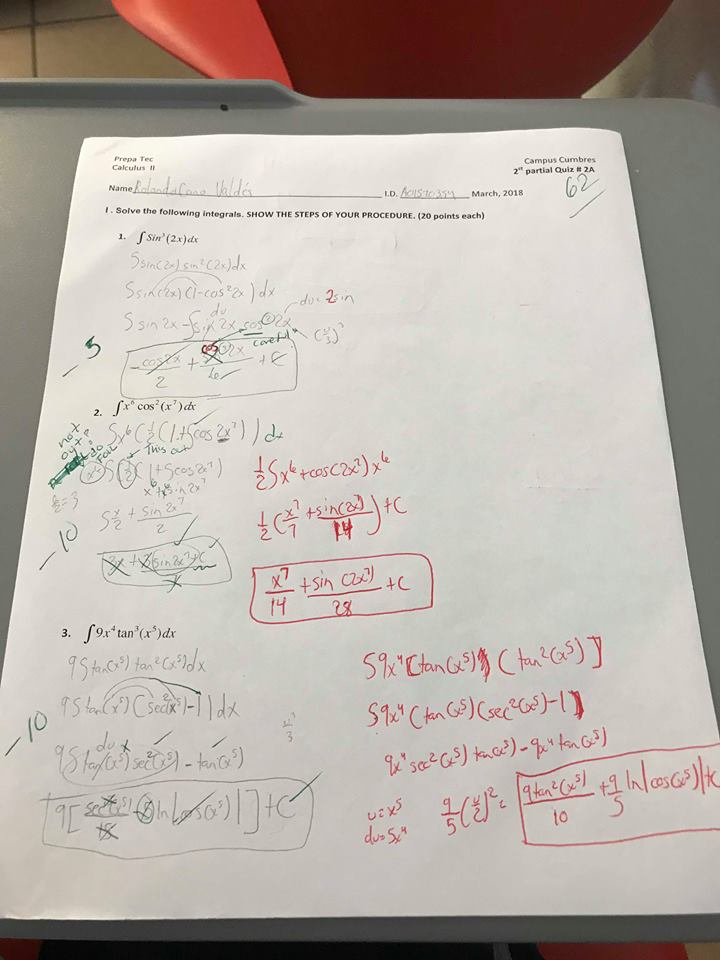 Prepa Tec
Calculus II
Campus Cumbres
2st partial Quiz # 2A
62
Name Rolando Cano Valdés I.D. A01570354 March, 2018
I . Solve the following integrals. SHOW THE STEPS OF YOUR PROCEDURE. (20 points each)
1. ∫ Sin³ (2x) dx
∫ sin(2x) sin²(2x)dx
∫ sin(2x) (1-cos²2x) dx
du = 2 sin
du
∫ sin 2x - ∫ sin 2x cos² 2x
careful
(u/3)³
- 5
- cos2x/2 + cos³2x/6 + C
2. ∫ x⁶ cos²(x⁷) dx
∫ x⁶ (½ (1 + ∫cos 2x⁷)) dx
not x
This out
(x⁶) ∫ (½) (1 + ∫cos 2x⁷)
6/2 = 3
∫ x/2 + sin 2x⁷/2
- 10
3x + 3(sin2x⁷+C
½ ∫ x⁶ + cos(2x⁷) x⁶
½ (x⁷/7 + sin(2x⁷)/14) + C
x⁷/14 + sin(2x⁷)/28 + C
3. ∫ 9x⁴ tan³(x⁵) dx
9 ∫ tan(x⁵) tan²(x⁵) dx
9 ∫ tan(x⁵) (sec²(x⁵) - 1) dx
- 10
du
9 ∫ tan(x⁵) sec²(x⁵) - tan(x⁵)
9[ sec(x⁵)/15 - ln|cos(x⁵)| ] + C
∫ 9x⁴ [tan(x⁵)] (tan²(x⁵)]
∫ 9x⁴ (tan(x⁵) (sec²(x⁵) - 1]
9x⁴ sec²(x⁵) tan(x⁵) - 9x⁴ tan(x⁵)
u = x⁵
du = 5x⁴
9/5 (u/2)² =
9tan²(x⁵)/10 + 9/5 ln|cos(x⁵)| + C